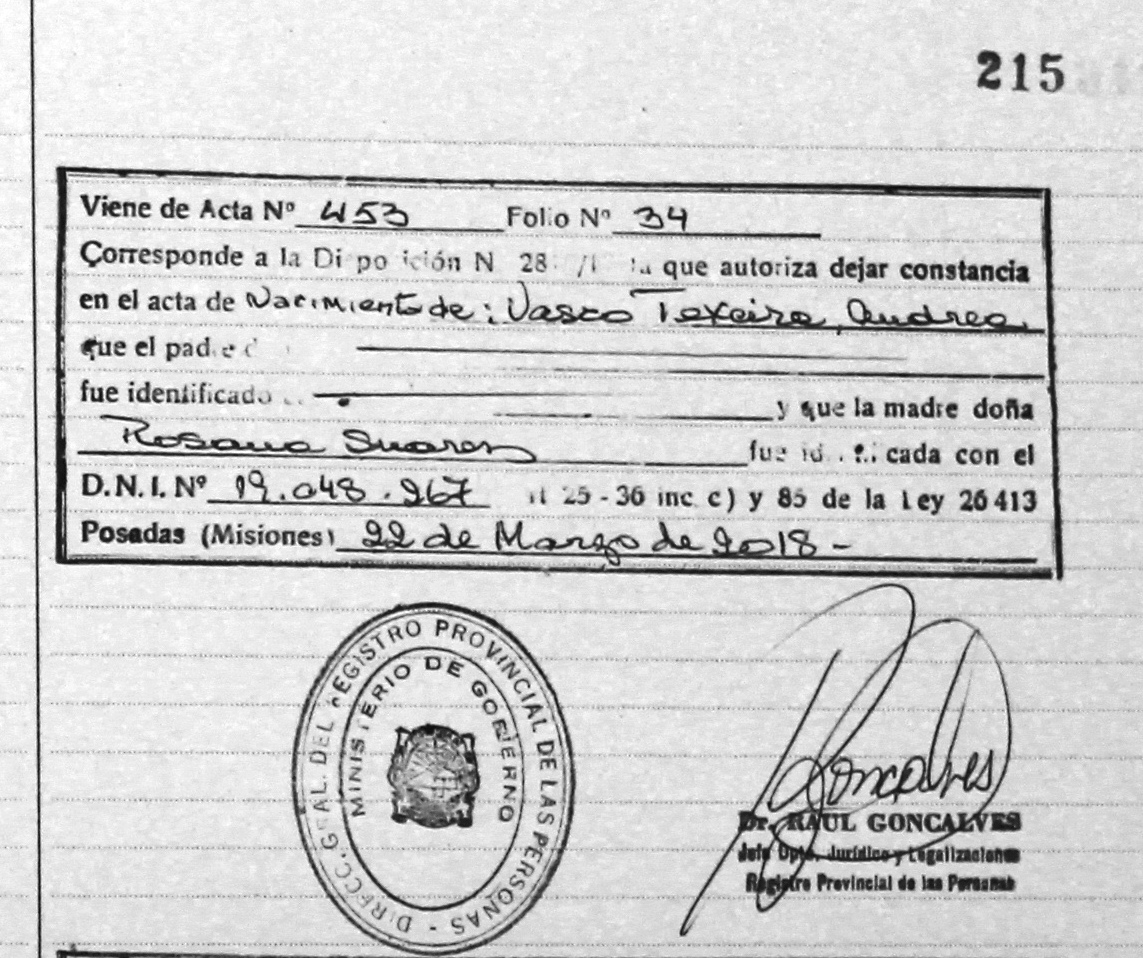 215
Viene de Acta Nº 453 Folio Nº 34
Corresponde a la Disposición N 28 que autoriza dejar constancia
en el acta de Nacimiento de: Vasco Texeira, Andrea.
que el padre
fue identificado y que la madre doña
Rosana Suarez fue identificada con el
D.N.I. Nº 19.048.967 25 - 36 inc. c) y 85 de la Ley 26413
Posadas (Misiones) 22 de Marzo de 2018 -
DIRECC. GRAL. DEL REGISTRO PROVINCIAL DE LAS PERSONAS -
MINISTERIO DE GOBIERNO
Goncalves
Dr. RAUL GONCALVES
Jefe Dpto. Jurídico y Legalizaciones
Registro Provincial de las Personas